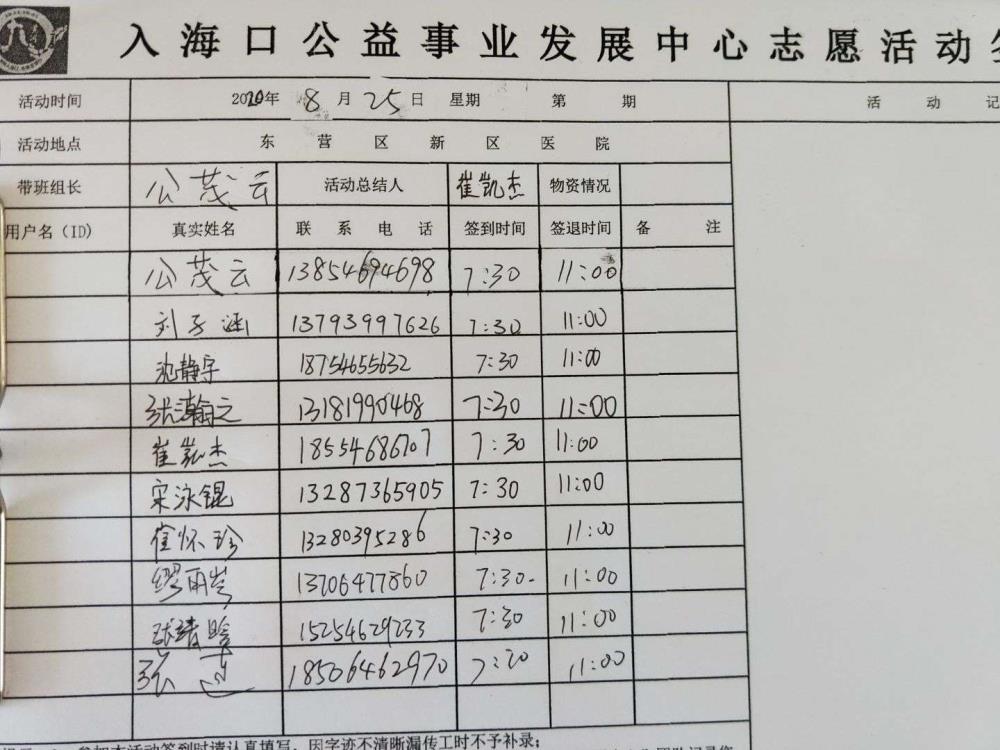 入海口公益事业发展中心志愿活动签
活动时间 2020年 8月 25日 星期 第 期 活 动 记
活动地点 东 营 区 新 区 医 院
带班组长 公茂云 活动总结人 崔凯杰 物资情况
用户名（ID） 真实姓名 联 系 电 话 签到时间 签退时间 备 注
公茂云 13854694698 7:30 11:00
刘子涵 13793997626 7:30 11:00
池静宇 18754655632 7:30 11:00
张瀚之 13181990468 7:30 11:00
崔凯杰 18554686707 7:30 11:00
宋泳锟 13287365905 7:30 11:00
崔怀珍 13280395286 7:30 11:00
缪雨岑 13706477860 7:30 11:00
15254629233 7:30 11:00
张 18506462970 7:20 11:00
参加本活动签到时请认真填写，因字迹不清晰漏传工时不予补录；